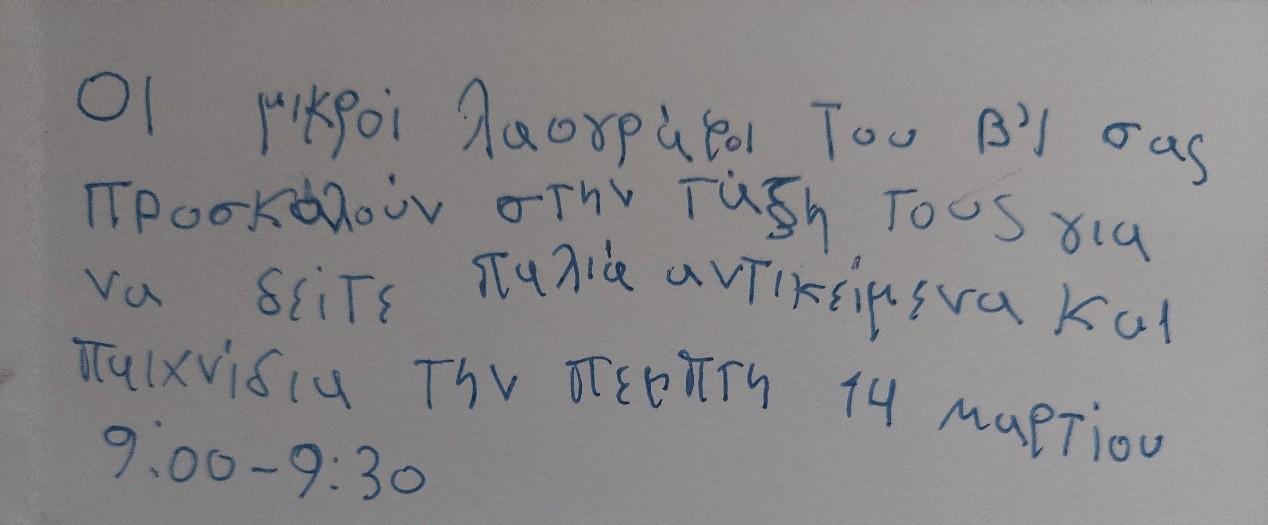 Οι μικροί λαογράφοι του Β'1 σας
προσκαλούν στην τάξη τους για
να δείτε παλιά αντικείμενα και
παιχνίδια την πεμπτη 14 μαρτίου
9:00-9:30